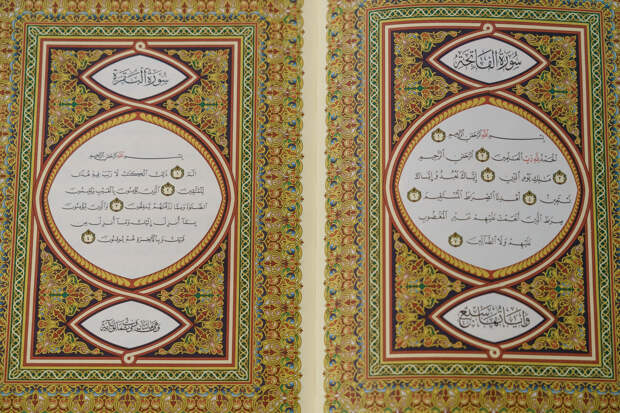 سورة الفاتحة
بسم الله الرحمن الرحيم ١
الحمد لله رب العلمين ٢ الرحمن الرحيم ٣
ملك يوم الدين ٤ إياك نعبد وإياك
نستعين ٥ اهدنا الصرط المستقيم ٦
صرط الذين أنعمت عليهم غير المغضوب
عليهم ولا الضالين ٧
وآياتها سبع
سورة البقرة
بسم الله الرحمن الرحيم
الم ١ ذلك الكتب لا ريب فيه هدى
للمتقين ٢ الذين يؤمنون بالغيب ويقيمون
الصلوة ومما رزقنهم ينفقون ٣ والذين يؤمنون
بما أنزل إليك وما أنزل من
قبلك وبالآخرة هم يوقنون ٤